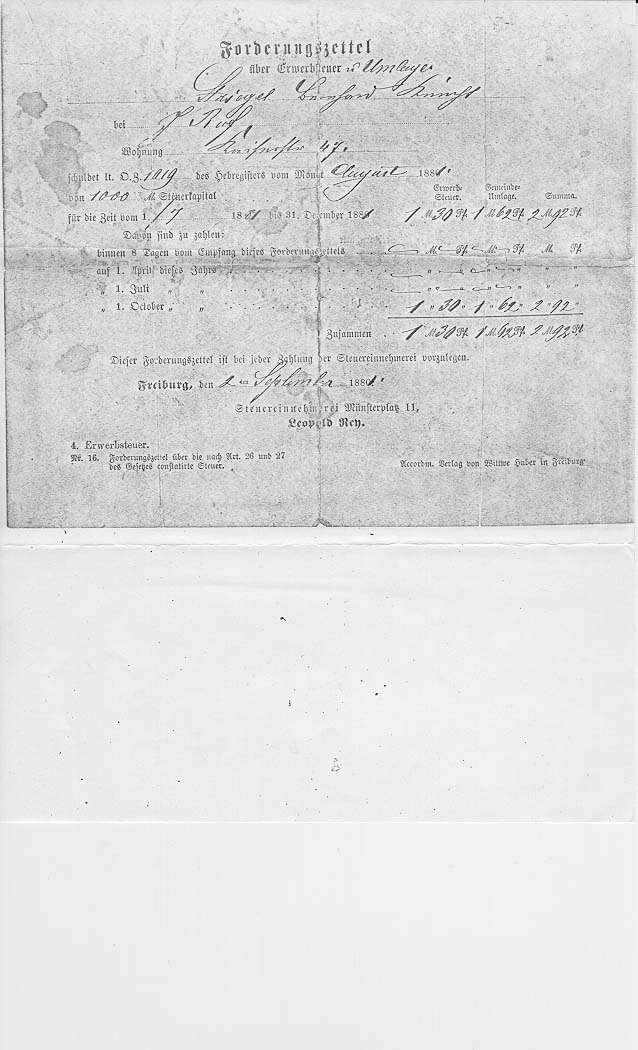 Forderungszettel
über Erwerbsteuer u Umlage
Bernhard Knecht
bei J Ruf
Wohnung Kaiserstr 47.
schuldet lt. O.Z. 1019 des Hebregisters vom Monat August 1881.
von 1000 M. Steuerkapital
Erwerb- Steuer. Gemeinde- Umlage. Summa.
für die Zeit vom 1. / 7 1881 bis 31. Dezember 1881 1 M. 30 Pf. 1 M. 62 Pf. 2 M. 92 Pf.
Davon sind zu zahlen:
binnen 8 Tagen vom Empfang dieses Forderungszettels . . . . M. Pf. M. Pf. M. Pf.
auf 1. April dieses Jahrs . . . . " " " " " "
" 1. Juli " " . . . . " " " " " "
" 1. October " " . . . . 1 " 30 " 1 " 62 " 2 " 92 "
Zusammen . . 1 M. 30 Pf. 1 M. 62 Pf. 2 M. 92 Pf.
Dieser Forderungszettel ist bei jeder Zahlung der Steuereinnehmerei vorzulegen.
Freiburg, den 2 ten September 1881.
Steuereinnehmerei Münsterplatz 11,
Leopold Rey.
4. Erwerbsteuer.
Nr. 16. Forderungszettel über die nach Art. 26 und 27
des Gesetzes constatirte Steuer.
Accordm. Verlag von Wittwe Huber in Freiburg